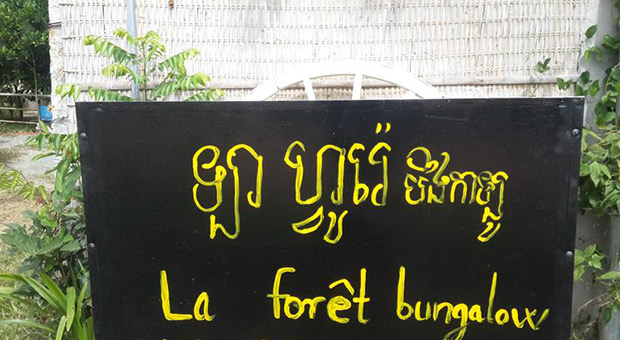 ឡា ហ្វូរ៉េ បឹងកាឡូ
La forêt bungalow